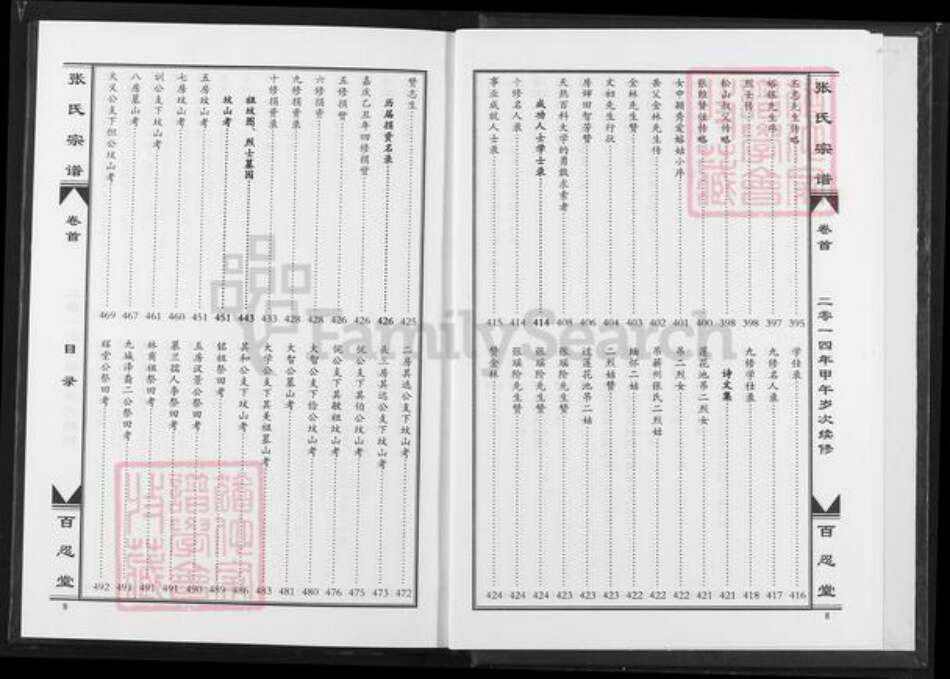 张氏宗谱
卷首
二零一四年甲午岁次续修
百忍堂
8
志先生传略 395
397
烈士传 398
松山叔父传略 398
张维贤侄传略 400
女中颖秀爱媛姑小序 401
岳父金林先生传 402
金林先生赞 403
文初先生行状 404
房婶田智芳赞 406
天然百科大学的勇敢求索者 408
成功人士学士录 414
十修名人录 414
事业成就人士录 415
学仕录 416
九修名人录 417
九修学仕录 418
诗文集 421
莲花池吊二烈女 421
吊二烈女 422
吊蕲州张氏二烈姑 422
缅怀二姑 422
二烈姑赞 423
过莲花池吊二姑 423
张瑞阶先生赞 423
张瑞阶先生赞 424
张瑞阶先生赞 424
赞金林 424
赞志生 425
历届捐资名录 426
嘉庆乙丑年四修捐赀 426
五修捐赀 428
六修捐资 428
九修捐资录 428
十修捐资录 433
祖坟图、烈士墓园 443
坟山考 451
五房坟山考 451
七房坟山考 460
训公支下坟山考 461
八房墓山考 467
大义公支下但公坟山考 469
二房其选公支下坟山考 472
长三房其远公支下坟山考 473
悦公支下其伯公坟山考 475
悦公支下其敏祖坟山考 476
大智公支下俭公坟山考 480
大智公墓山考 481
大学公支下其美祖墓山考 483
其和公支下坟山考 486
铭祖祭田考 489
五房汉景公祭田考 490
慕兰孺人李祭田考 491
林甫祖祭田考 491
九城泽翥二公祭田考 491
辉堂公祭田考 492
张氏宗谱
卷首
目录
百忍堂
8
FamilySearch